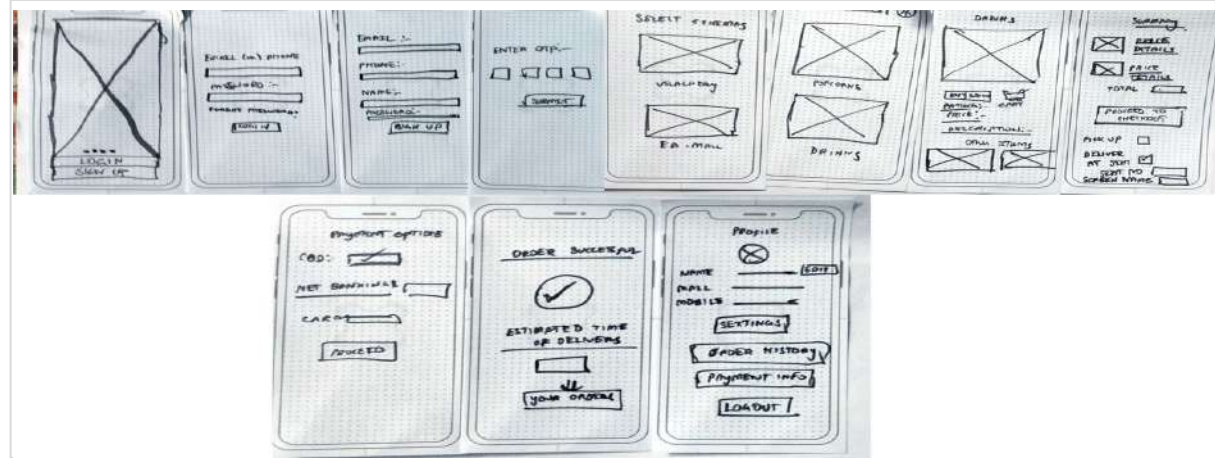 LOGIN
SIGN UP
EMAIL (or) PHONE
PASSWORD :-
FORGOT PASSWORD?
LOGIN
EMAIL :-
PHONE:-
NAME:-
PASSWORD:-
SIGN UP
ENTER OTP:-
SUBMIT
SELECT
POPCORNS
DRINKS
DRINKS
CART
RATINGS:-
PRICE:-
DESCRIPTION:-
OTHER ITEMS
SUMMARY
DETAILS
PRICE
DETAILS
TOTAL
PROCEED TO
CHECKOUT
PICK UP
DELIVER
AT SEAT
SEAT NO
SCREEN NAME
PAYMENT OPTIONS
COD:
NET BANKING
CARD
PROCEED
ORDER SUCCESSFUL
ESTIMATED TIME
OF DELIVERY
YOUR ORDERS
PROFILE
NAME
EDIT
MAIL
MOBILE
SETTINGS
ORDER HISTORY
PAYMENT INFO
LOGOUT